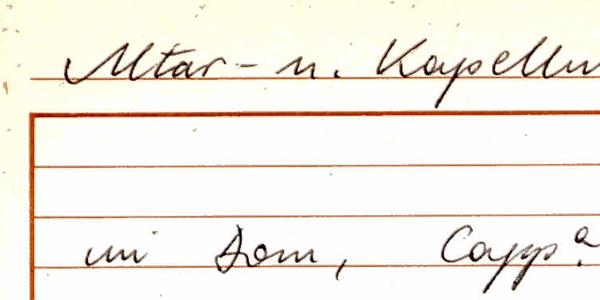 Altar- u. Kapellen
im Dom, Capp.a